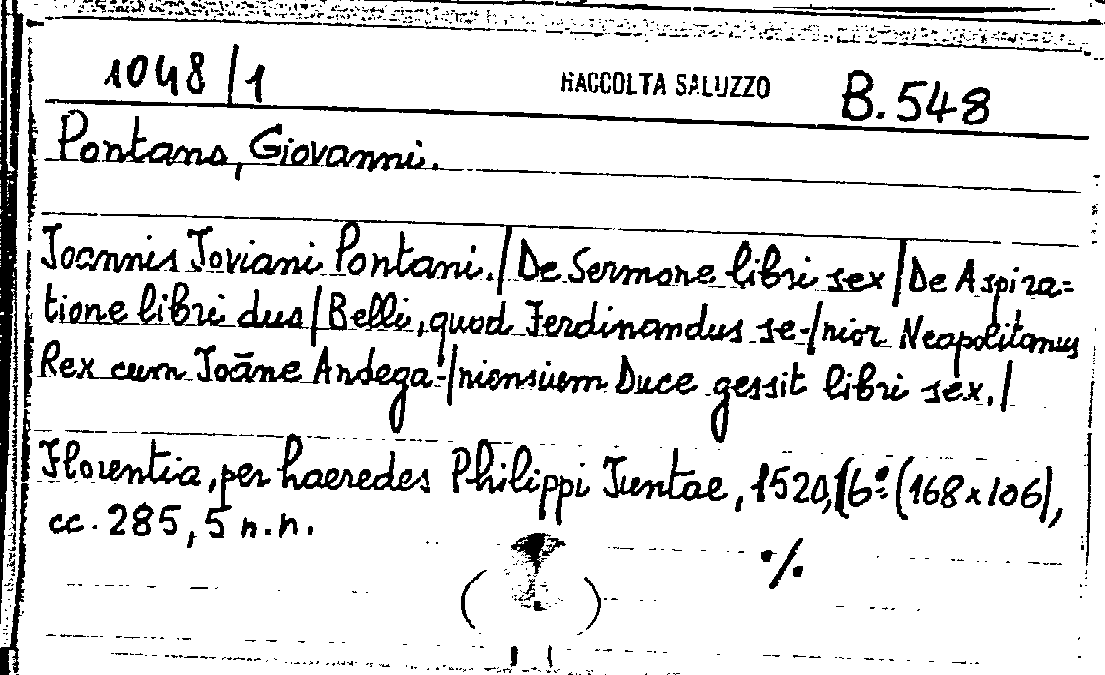 1048/1 RACCOLTA SALUZZO B.548
Pontano, Giovanni.
Joannis Joviani Pontani./De Sermone libri sex/De Aspira=
tione libri duo/Belli, quod Ferdinandus se-/nior Neapolitanus
Rex cum Joāne Andega-/niensium Duce gessit libri sex./
Florentia, per haeredes Philippi Juntae, 1520, 16º (168x106),
cc. 285, 5 n.n.
./.